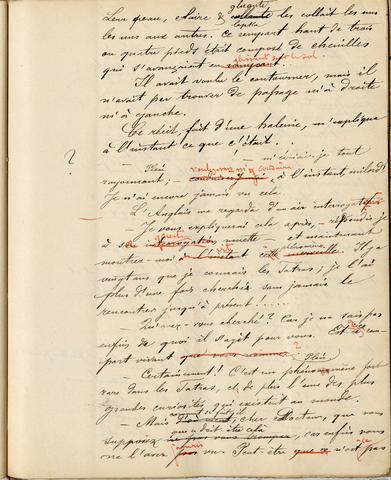 Leur peau, claire & gluante les collait les uns
les uns aux autres. Ce rempart haut de trois
ou quatre pieds était composé de chenilles
qui s'avançaient en rampant.
Il avait voulu le contourner, mais il
n'avait pu trouver de passage ni à droite
ni à gauche.
Ce récit, fait d'une haleine, m'expliqua
à l'instant ce que c'était.
?
m'écriai-je tout
rayonnant; — conduire à l'instant milord!
Je n'ai encore jamais vu cela
L'Anglais me regarda d'un air
— Je vous expliquerai cela après, — répondis-je
à sa question muette — et maintenant
montrez-moi à l'instant cette merveille. Il y a
vingt ans que je connais les Tatras; je l'ai
plus d'une fois cherchée sans jamais le
rencontrer jusqu'à présent!....
— Qu'avez-vous cherché? Car je ne sais pas
enfin de quoi il s'agit pour vous. Est-ce
vivant
— Certainement! C'est un phénomène fort
rare dans les Tatras, et, de plus l'une des plus
grandes curiosités qui existent au monde.
— Mais cher Docteur, que vous
supposiez car enfin vous
ne l'avez jamais vu. Peut-être n'est pas